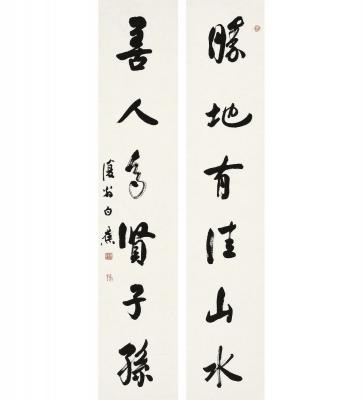 勝地有佳山水
善人為賢子孫
復翁白蕉